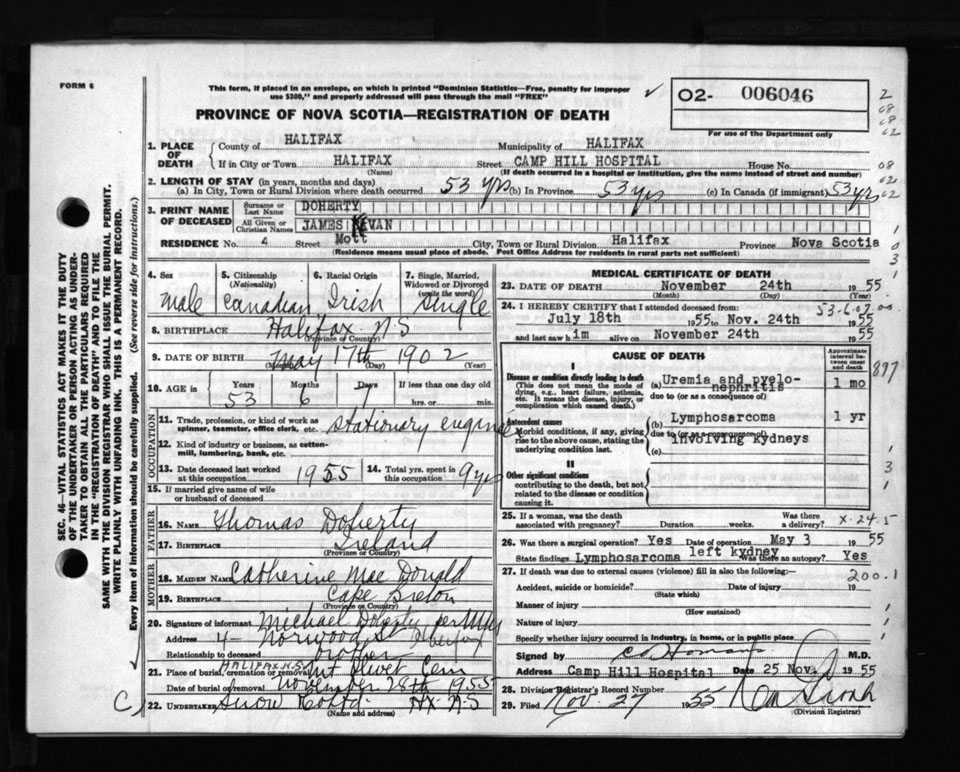 FORM 6
This form, if placed in an envelope, on which is printed "Dominion Statistics—Free, penalty for improper
use $300," and property addressed will pass through the mail "FREE"
PROVINCE OF NOVA SCOTIA—REGISTRATION OF DEATH
02- 006046
For use of the Department only
1. PLACE OF DEATH
County of HALIFAX Municipality of HALIFAX
If in City or Town HALIFAX Street CAMP HILL HOSPITAL House No.
(Name) (If death occurred in a hospital or institution, give the name instead of street and number)
2. LENGTH OF STAY (in years, months and days)
(a) In City, Town or Rural Division where death occurred 53 yrs (b) In Province 53 yrs (c) In Canada (if immigrant) 53 yrs
3. PRINT NAME OF DECEASED
Surname or Last Name DOHERTY
All Given or Christian Names JAMES IVAN
RESIDENCE No. 4 Street Mott City, Town or Rural Division Halifax Province Nova Scotia
(Residence means usual place of abode. Post Office Address for residents in rural parts not sufficient)
4. Sex 5. Citizenship (Nationality) 6. Racial Origin 7. Single, Married, Widowed or Divorced (write the word)
Male Canadian Irish Single
8. BIRTHPLACE Halifax N.S
(Province or Country)
9. DATE OF BIRTH May 17th 1902
(Month) (Day) (Year)
10. AGE in Years Months Days If less than one day old
53 6 7 hrs. or min.
OCCUPATION
11. Trade, profession, or kind of work as spinner, teamster, office clerk, etc. Stationary engineer
12. Kind of industry or business, as cotton-mill, lumbering, bank, etc.
13. Date deceased last worked at this occupation 1955 14. Total yrs. spent in this occupation 9 yrs
15. If married give name of wife or husband of deceased
FATHER
16. NAME Thomas Doherty
17. BIRTHPLACE Ireland
(Province or Country)
MOTHER
18. MAIDEN NAME Catherine Mae Donald
19. BIRTHPLACE Cape Breton
(Province or Country)
20. Signature of informant Michael Doherty per
Address 4- Norwood St Halifax
Relationship to deceased brother
21. Place of burial, cremation or removal HALIFAX N.S. Mt olivet Cem
Date of burial or removal November 28th 1955
22. UNDERTAKER Snow Hx N.S
(Name and address)
MEDICAL CERTIFICATE OF DEATH
23. DATE OF DEATH November 24th 1955
(Month) (Day) (Year)
24. I HEREBY CERTIFY that I attended deceased from:
July 18th 1955 to Nov. 24th 1955
and last saw h im alive on November 24th 1955
CAUSE OF DEATH
Approximate interval between onset and death
I
Disease or condition directly leading to death
(This does not mean the mode of dying, e.g., heart failure, asthenia, etc. It means the disease, injury, or complication which caused death.)
(a) Uremia and pyelo-nephritis 1 mo
due to (or as a consequence of)
Antecedent causes
Morbid conditions, if any, giving rise to the above cause, stating the underlying condition last.
(b) Lymphosarcoma 1 yr
due to (or as a consequence of)
involving kydneys
(c)
II
Other significant conditions
contributing to the death, but not related to the disease or condition causing it.
25. If a woman, was the death associated with pregnancy? Duration weeks. Was there a delivery?
X-24.5
26. Was there a surgical operation? Yes Date of operation May 3 1955
State findings Lymphosarcoma left kydney Was there an autopsy? Yes
27. If death was due to external causes (violence) fill in also the following:—
200.1
Accident, suicide or homicide? Date of injury 19
(State which)
Manner of injury
(How sustained)
Nature of injury
Specify whether injury occurred in industry, in home, or in public place
Signed by M.D.
Address Camp Hill Hospital Date 25 Nov. 1955
28. Division Registrar's Record Number
29. Filed Nov. 27 1955
(Division Registrar)
SEC. 46—VITAL STATISTICS ACT MAKES IT THE DUTY
OF THE UNDERTAKER OR PERSON ACTING AS UNDER-
TAKER TO OBTAIN ALL THE PARTICULARS REQUIRED
IN THE "REGISTRATION OF DEATH" AND TO FILE THE
SAME WITH THE DIVISION REGISTRAR WHO SHALL ISSUE THE BURIAL PERMIT.
WRITE PLAINLY WITH UNFADING INK. THIS IS A PERMANENT RECORD.
Every item of information should be carefully supplied. (See reverse side for instructions.)
897